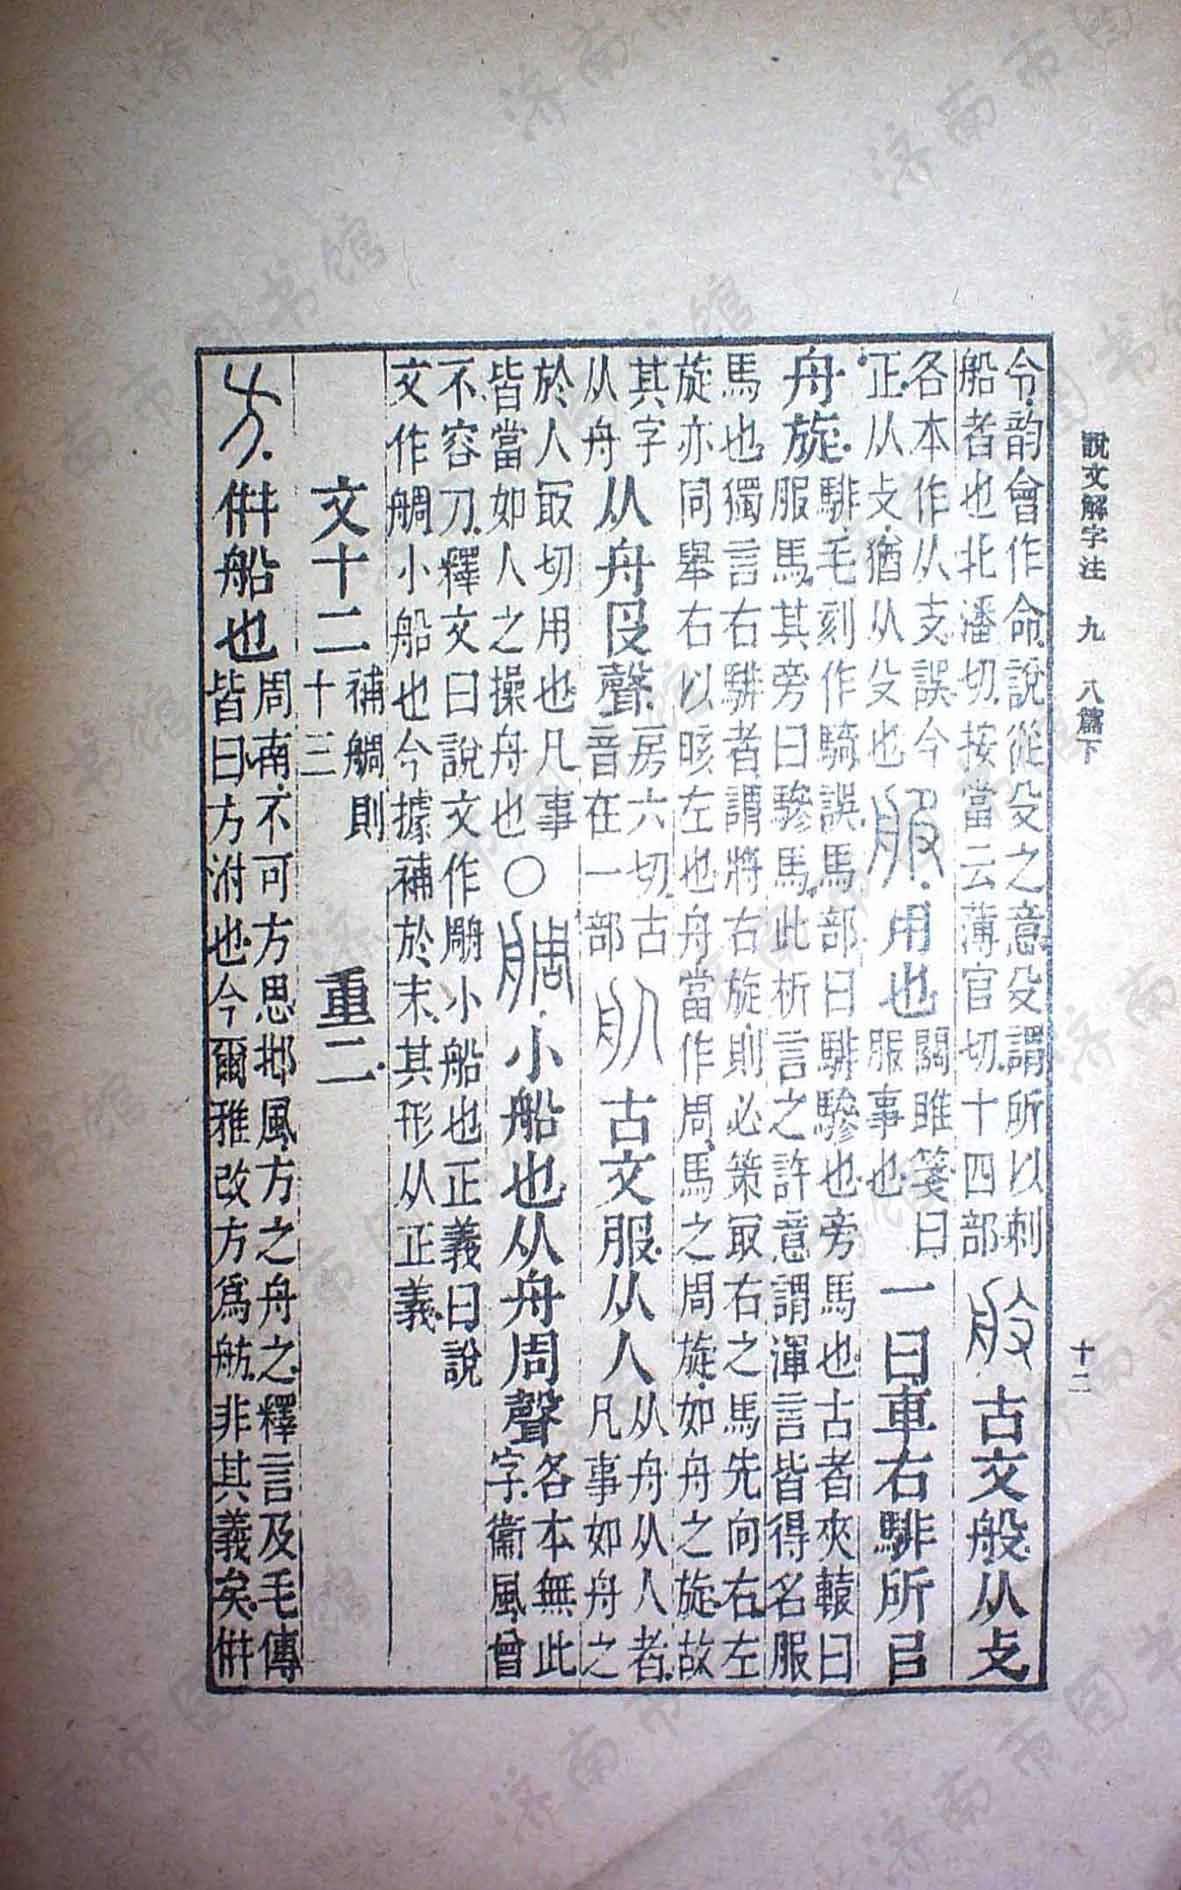 說文解字注 九 八篇下 十二
令.韵會作命.說從殳之意.殳謂所以刺
船者也.北潘切.按當云薄官切.十四部
古文般.从攴
各本作从支誤.今
正.从攴.猶从殳也
服.用也
關雎箋曰
服事也
一曰車右騑所㠯
舟旋.
騑.毛刻作騎誤.馬部曰騑驂也.旁馬也.古者夾轅曰
服馬.其旁曰驂馬.此析言之.許意謂渾言皆得名服
馬也.獨言右騑者.謂將右旋.則必策冣右之馬先向右.左
旋亦同.舉右以晐左也.舟當作周.馬之周旋.如舟之旋.故
其字
从舟
从舟𠬝聲.
房六切.古
音在一部
古文服.从人
从舟从人者.
凡事如舟之
於人冣切用也.凡事
皆當如人之操舟也
○䑲.小船也从舟周聲
各本無此
字.衞風.曾
不容刀.釋文曰.說文作𦨣小船也.正義曰.說
文作䑲小船也.今據補於末.其形从正義.
文十二
補䑲則
十三
重二
方.併船也
周南.不可方思.邶風.方之舟之.釋言及毛傳
皆曰.方泭也.今爾雅改方爲舫.非其義矣.併
济南市图书馆